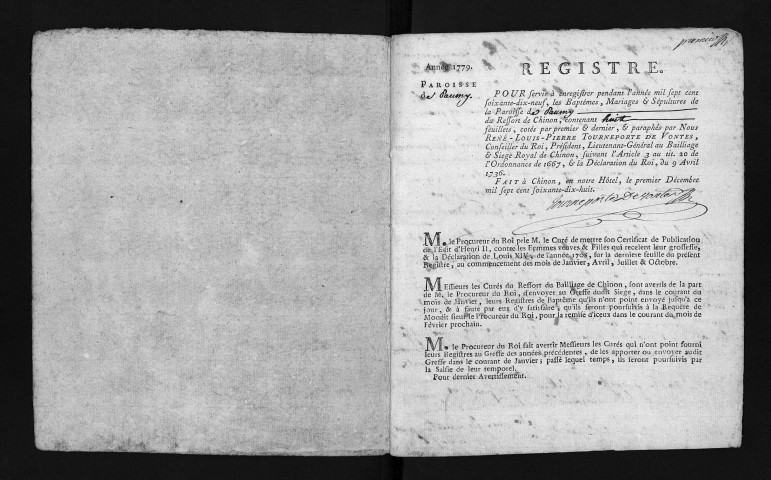 premier
Année 1779.
REGISTRE.
PAROISSE
de Paumy.
POUR servir à enregistrer pendant l'année mil sept cent
soixante-dix-neuf, les Baptêmes, Mariages & Sépultures de
la Paroisse de Paumy
du Ressort de Chinon, contenant huit
feuillets, cotés par premier & dernier, & paraphés par Nous
RENÉ-LOUIS-PIERRE TOURNEPORTE DE VONTES,
Conseiller du Roi, Président, Lieutenant-Général au Bailliage
& Siege Royal de Chinon, suivant l'Article 3 au tit. 20 de
l'Ordonnance de 1667, & la Déclaration du Roi, du 9 Avril
1736.
FAIT à Chinon, en notre Hôtel, le premier Décembre
mil sept cent soixante-dix-huit.
Tourneporte de Vontes
M. le Procureur du Roi prie M. le Curé de mettre son Certificat de Publication
de l'Edit d'Henri II, contre les Femmes veuves & Filles qui recelent leur grossesse,
& la Déclaration de Louis XIV, de l'année 1708, sur la derniere feuille du présent
Registre, au commencement des mois de Janvier, Avril, Juillet & Octobre.
MEssieurs les Curés du Ressort du Bailliage de Chinon, sont avertis de la part
de M. le Procureur du Roi, d'envoyer au Greffe dudit Siege, dans le courant du
mois de Janvier, leurs Registres de Baptême qu'ils n'ont point envoyé jusqu'à ce
jour, & à faute par eux d'y satisfaire, qu'ils seront poursuivis à la Requête de
Mondit sieur le Procureur du Roi, pour la remise d'iceux dans le courant du mois de
Février prochain.
M. le Procureur du Roi fait avertir Messieurs les Curés qui n'ont point fourni
leurs Registres au Greffe des années précédentes, de les apporter ou envoyer audit
Greffe dans le courant de Janvier; passé lequel temps, ils seront poursuivis par
la Saisie de leur temporel.
Pour dernier Avertissement.